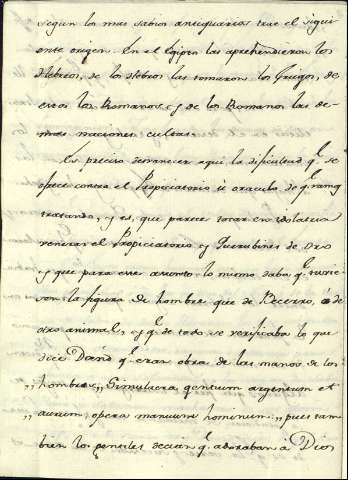 segun los mas sabios antiquarios trae el sigui
ente origen. En el Egipto las aprehendieron los
Hebreos, de los Hebreos las tomaron los Griegos, de
estos los Romanos, y de los Romanos las de-
mas naciones cultas.
Es preciso desvanecer aqui la dificultad q.e se
ofrece contra el Propiciatorio ú oraculo de q.e vamos
tratando, y es, que parece tocar en idolatria
venerar el Propiciatorio y Querubines de Oro
y que para este asunto lo mismo daba q.e tuvie-
sen la figura de hombre que de Becerro, ó de
otro animal, y q.e de todo se verificaba lo que
dice David q.e eran obra de las manos de los
„ hombres „ Simulacra gentium argentum et
„ aurum, opera manuum hominum: „ pues tam
bien los gentiles decian q.e adoraban á Dios